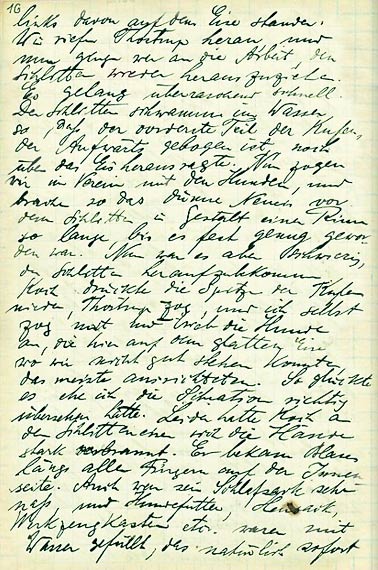 16
links davon auf dem Eise standen.
Wir riefen Thostrup heran, und
nun gings wir an die Arbeit, den
Schlitten wieder herauszuziehen.
Es gelang überraschend schnell.
Der Schlitten schwamm im Wasser
so, daß der vorderste Teil der Kufen,
der Aufwärts gebogen ist, noch
über das Eis herausragte. Nun zogen
wir in Verein mit den Hunden, und
brachen so das dünne Neueis vor
dem Schlitten in Gestalt einer Rinne
so lange bis es fest genug gewor-
den war. Nun war es aber schwierig,
den Schlitten heraufzubekommen.
Koch drückte die Spitzen der Kufen
nieder, Thostrup zog, und ich selbst
zog mit und trieb die Hunde
an, die hier auf dem glatten Eise
wo wir nicht gut stehen konnten,
das meiste ausrichteten. So glückte
es ehe ich die Situation richtig
übersehen hatte. Leider hatte Koch a
den Schlitteneisen sich die Hände
stark verbrannt. Er bekam Blasen
längs aller Fingern auf der Innen-
seite. Auch war sein Schlafsack sehr
naß, und Hundefutter,
Werkzeugkasten etc. waren mit
Wasser gefüllt, das natürlich sofort